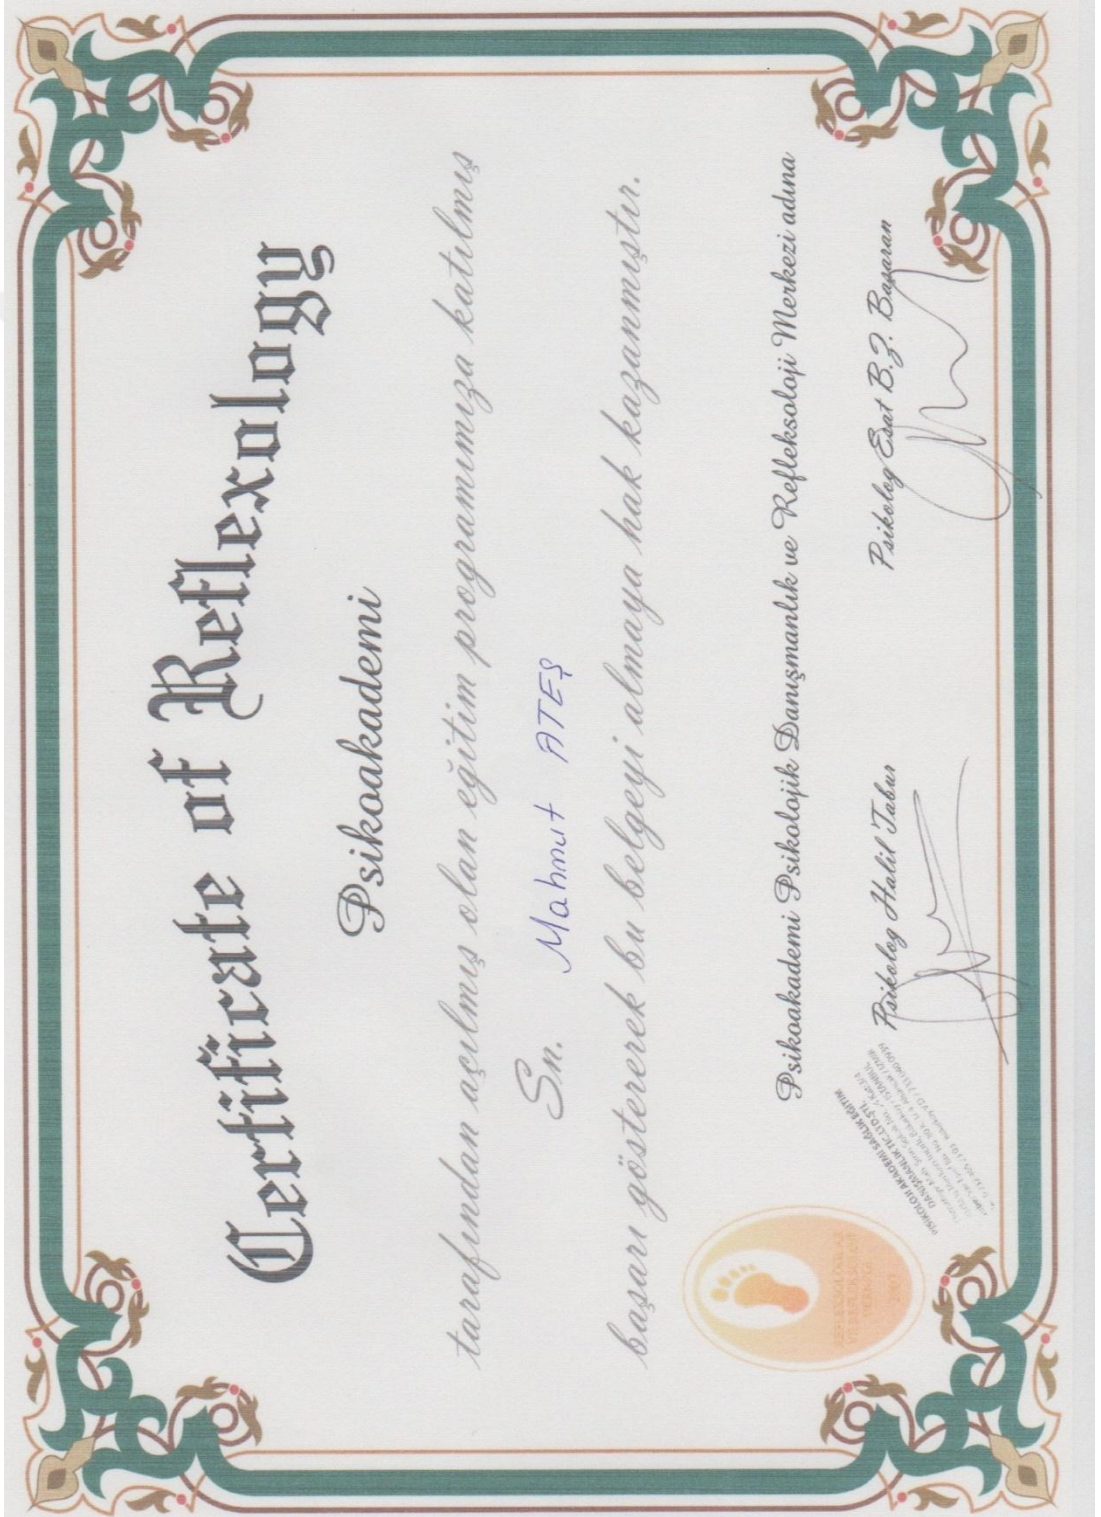 Certificate of Reflexology
Psikoakademi
tarafından açılmış olan eğitim programımıza katılmış
Sn. Mahmut ATEŞ
başarı göstererek bu belgeyi almaya hak kazanmıştır.
Psikoakademi Psikolojik Danışmanlık ve Refleksoloji Merkezi adına
Psikolog Halil Tabur
Psikolog Esat B.Z. Başaran
PSİKOLOJİ AKADEMİ SAĞLIK EĞİTİM
DANIŞMANLIK TİC. LTD. ŞTİ.